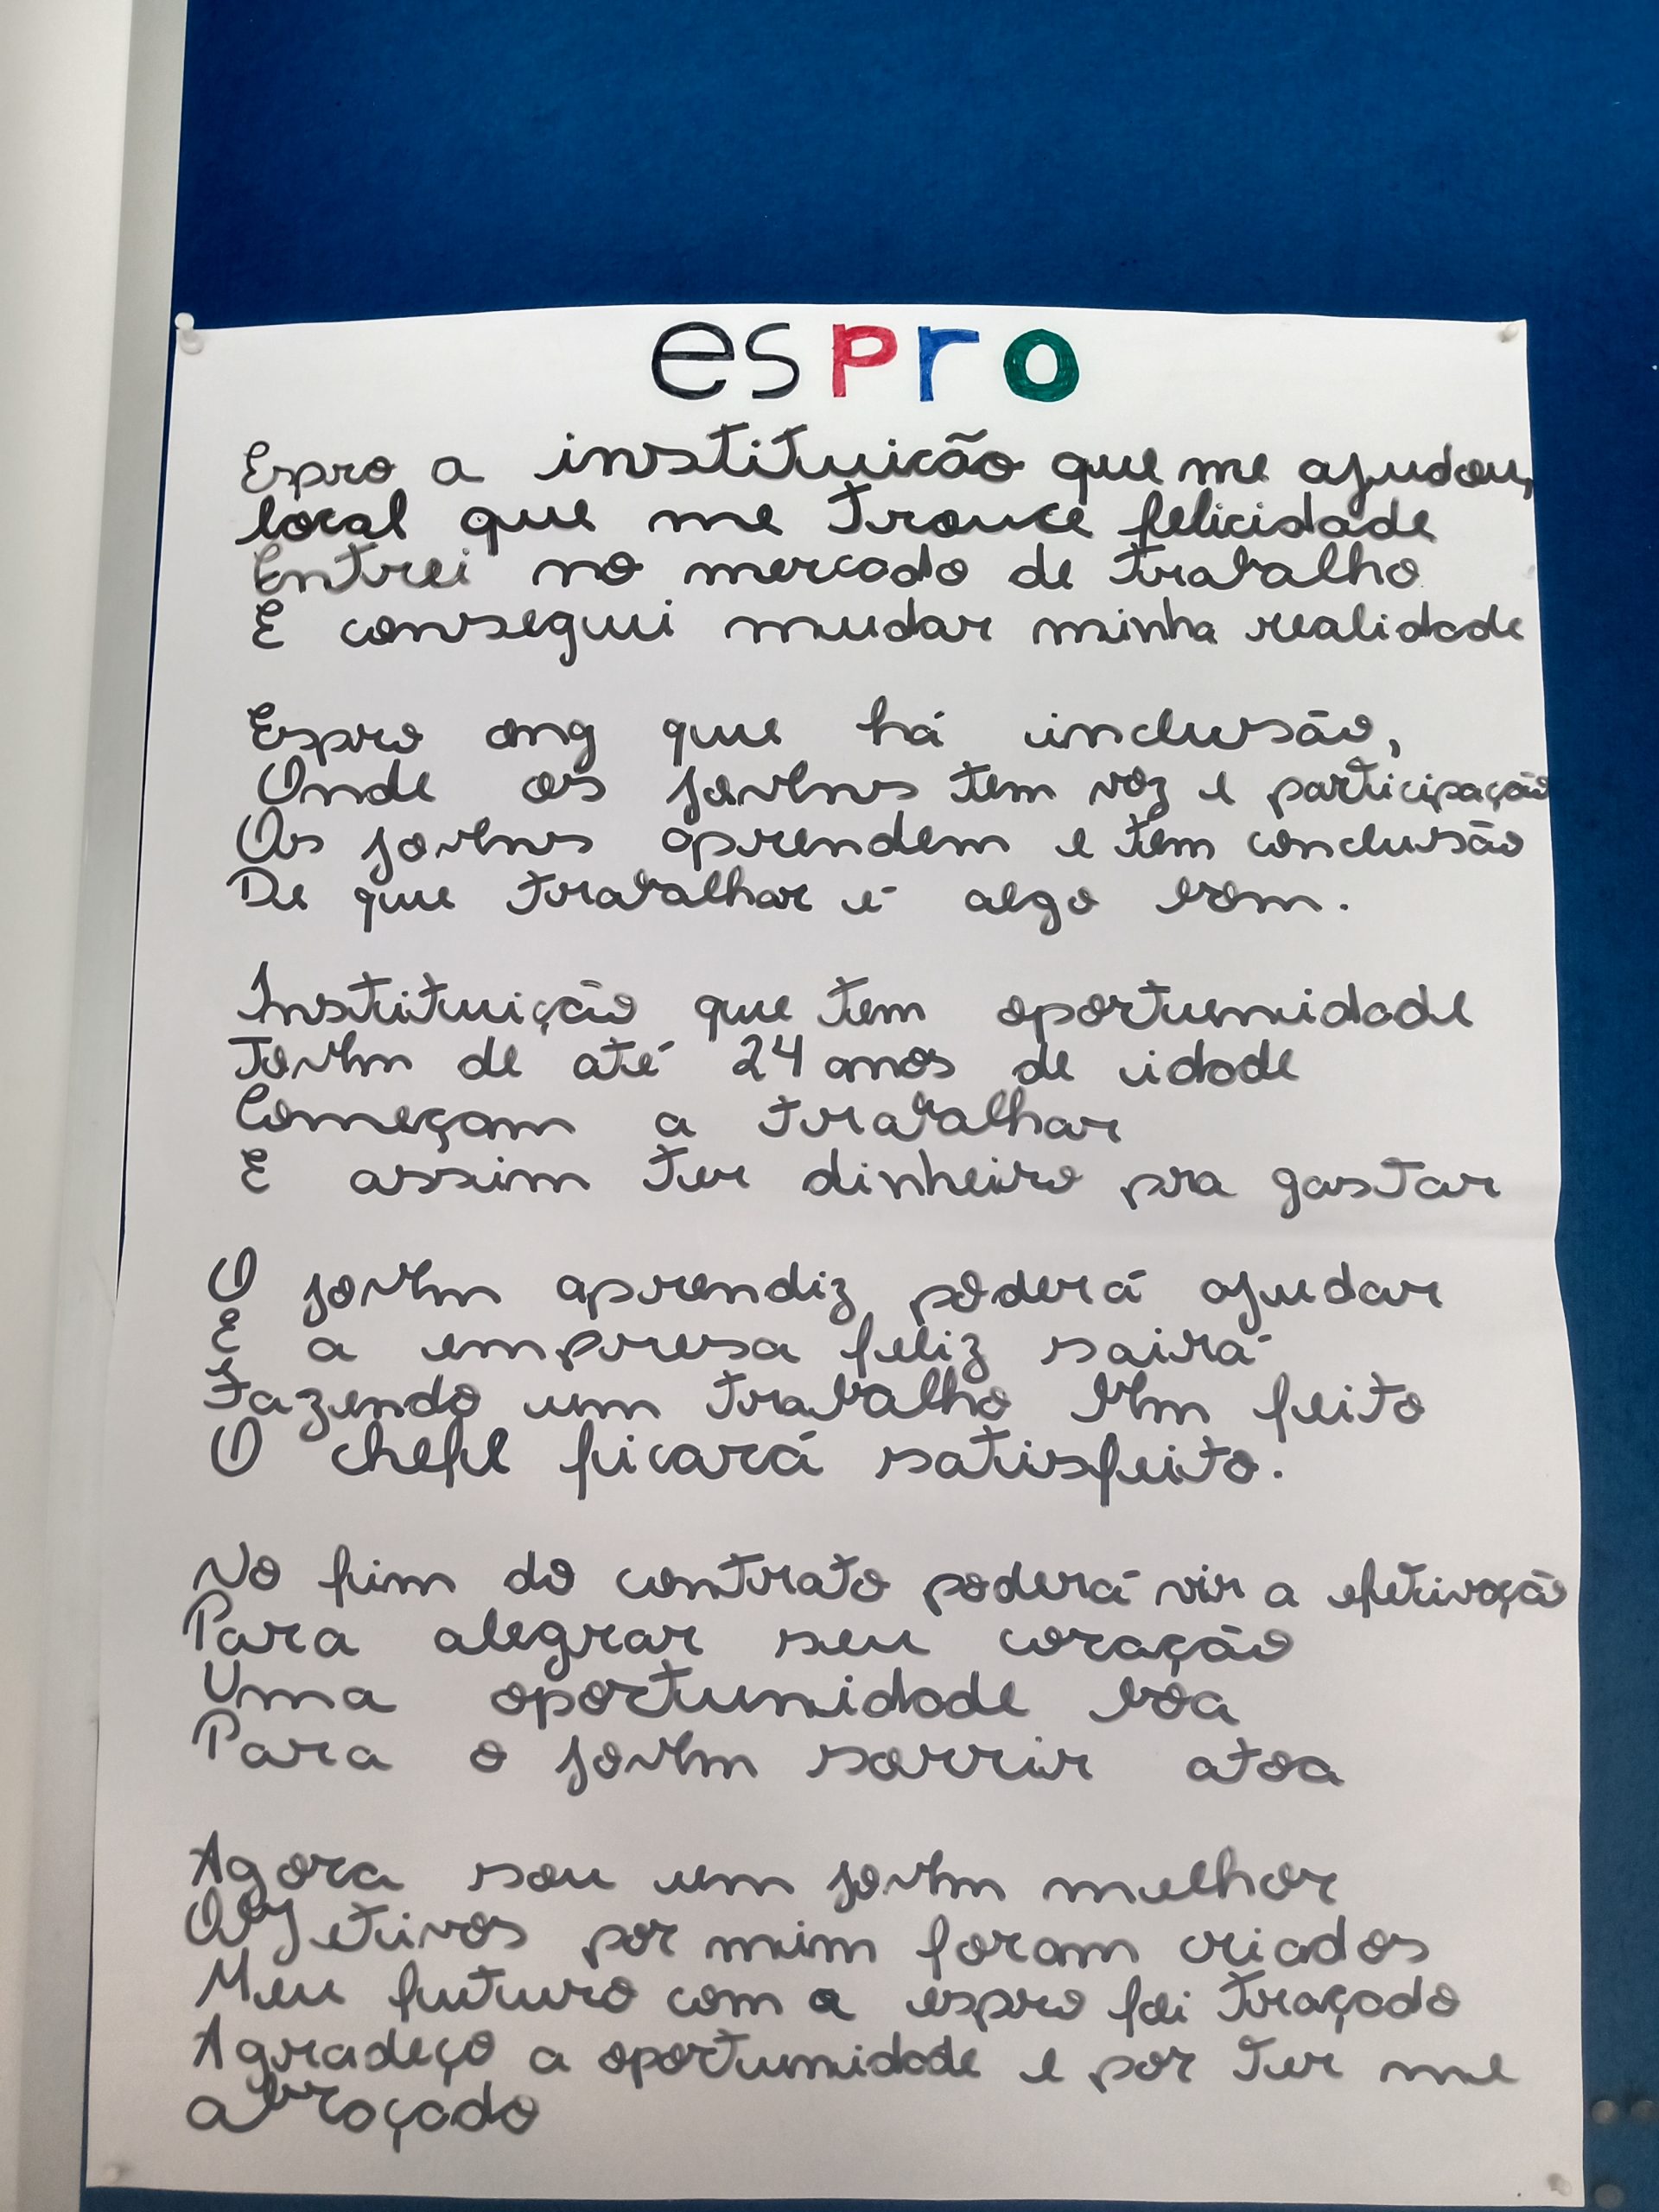 espro
Espro a instituicão que me ajudou,
local que me trouce felicidade
Entrei no mercado de trabalho
E consegui mudar minha realidade
Espro ong que há inclusão,
Onde os jovens tem voz e participação
Os jovens aprendem e tem conclusão
De que trabalhar é algo bom.
Instituição que tem oportunidade
Jovem de até 24 anos de idade
Começam a trabalhar
E assim ter dinheiro pra gastar
O jovem aprendiz poderá ajudar
E a empresa feliz sairá
Fazendo um trabalho bem feito
O chefe ficará satisfeito.
No fim do contrato poderá vir a efetivação
Para alegrar seu coração
Uma oportunidade boa
Para o jovem sorrir atoa
Agora sou um jovem melhor
Objetivos por mim foram criados
Meu futuro com a espro foi traçado
Agradeço a oportunidade e por ter me
abraçado